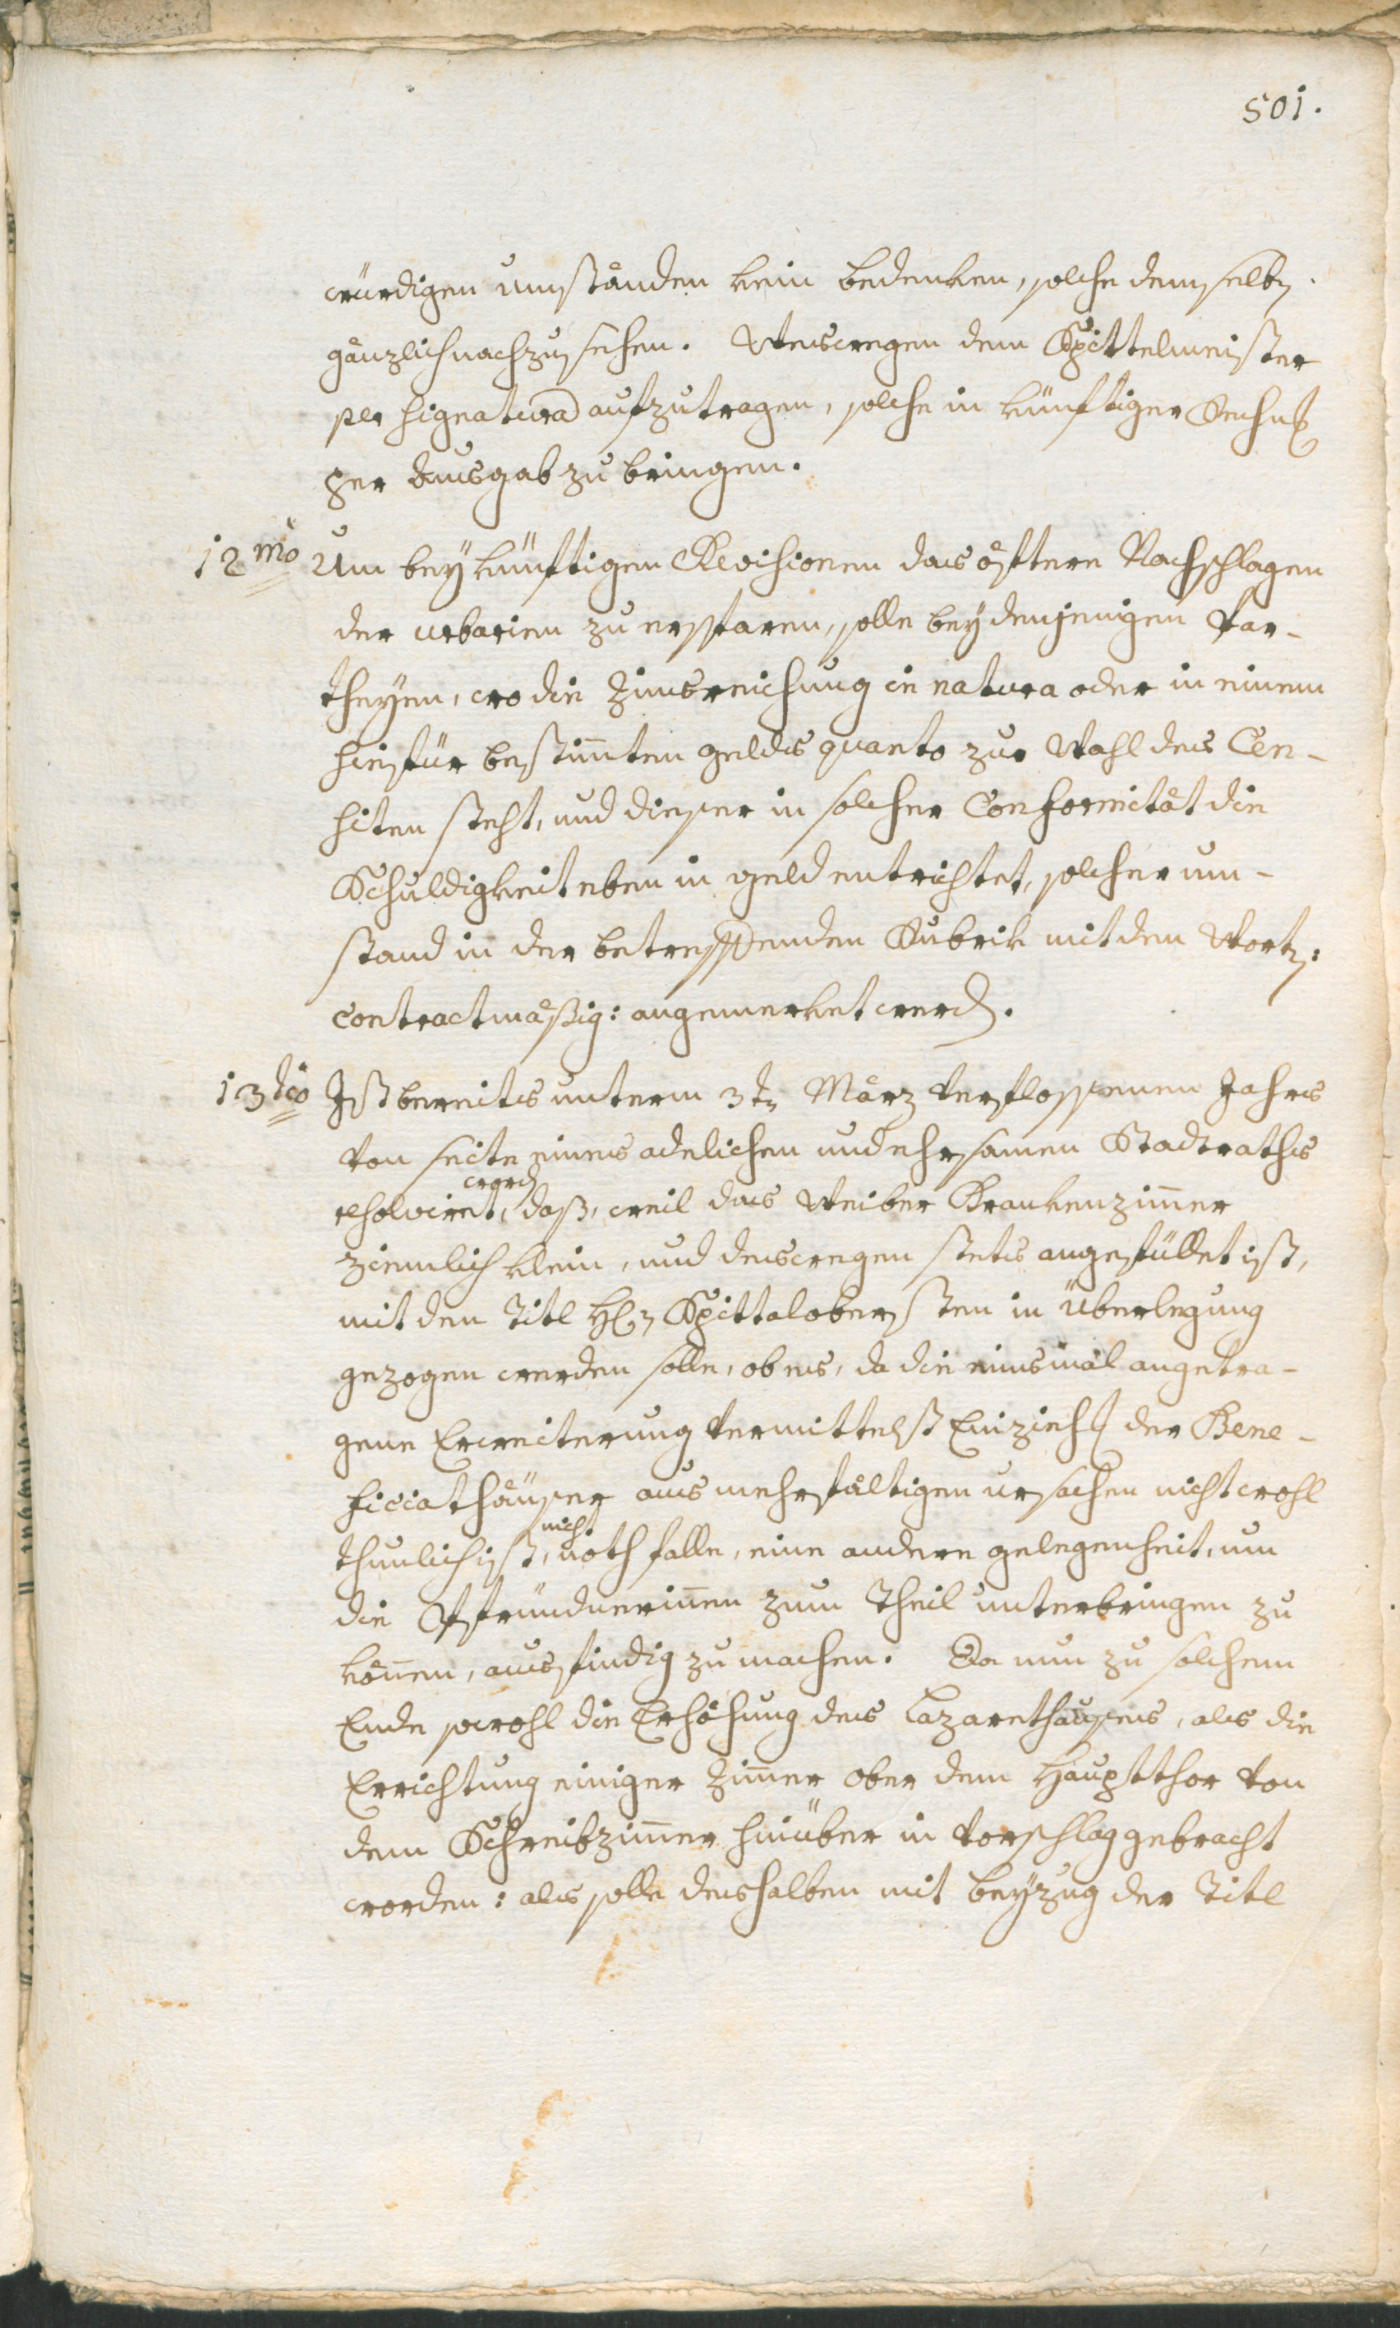 501.
würdigen umständen kein bedenken, solche demselben
gänzlich nachzusehen. Weswegen dem Spittelmeister
per signatura aufzutragen, solche in künftiger Rechnung
per Ausgab zu bringen.
12mo Um bey künftigen Revisionen das öftere Nachschlagen
der urbarien zu ersparen, solle bey denjenigen Par-
theyen, wo die Zinsreichung in natura oder in einem
hiefür bestimten gelds quanto zur Wahl des Cen-
siten steht, und dieser in solcher Conformität die
Schuldigkeit eben in geld entrichtet, solcher um-
stand in der betreffenden Rubrik mit dem Wort:
contractmäßig: angemerket werden.
13tio Ist bereits unterm 3ten März verflossenen Jahrs
von seite eines adelichen und ehrsamen Stadtraths
resolvirt worden, daß, weil das Weiber Krankenzimer
ziemlich klein, und deswegen stets angefüllet ist,
mit den Titl Hl. Spittalobersten in überlegung
gezogen werden solle, ob es, da die einsmal angetra-
gene Erweiterung vermittelst Einziehung der Bene-
ficiathäuser aus mehrfältigen ursachen nicht wohl
thunlich ist, nicht noth falle, eine andere gelegenheit, um
die Pfründnerinen zum Theil unterbringen zu
könen, ausfindig zu machen. Da nun zu solchem
Ende sowohl die Erhöhung des Lazarethauses, als die
Errichtung einiger Zimer ober dem Hauptthor von
dem Schreibzimer hinüber in Vorschlag gebracht
worden: als solle deshalben mit beyzug der Titl